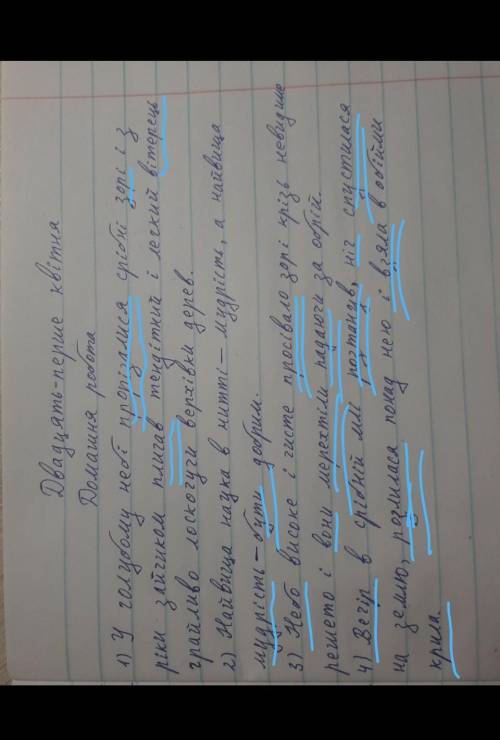 Двадцять-перше квітня
Домашня робота
1) У голубому небі прорізалися срібні зорі і з
ріки зайчиком плигав тендітний і легкий вітерець
грайливо лоскочучи верхівки дерев.
2) Найвища наука в житті – мудрість, а найвища
мудрість – бути добрим.
3) Небо високе і чисте просівало зорі крізь невидиме
решето і вони мерехтіли падаючи за обрій.
4) Вечір в срібній млі розтанув, ніч спустилася
на землю, розлилася понад нею і взяла в обійми
крила.